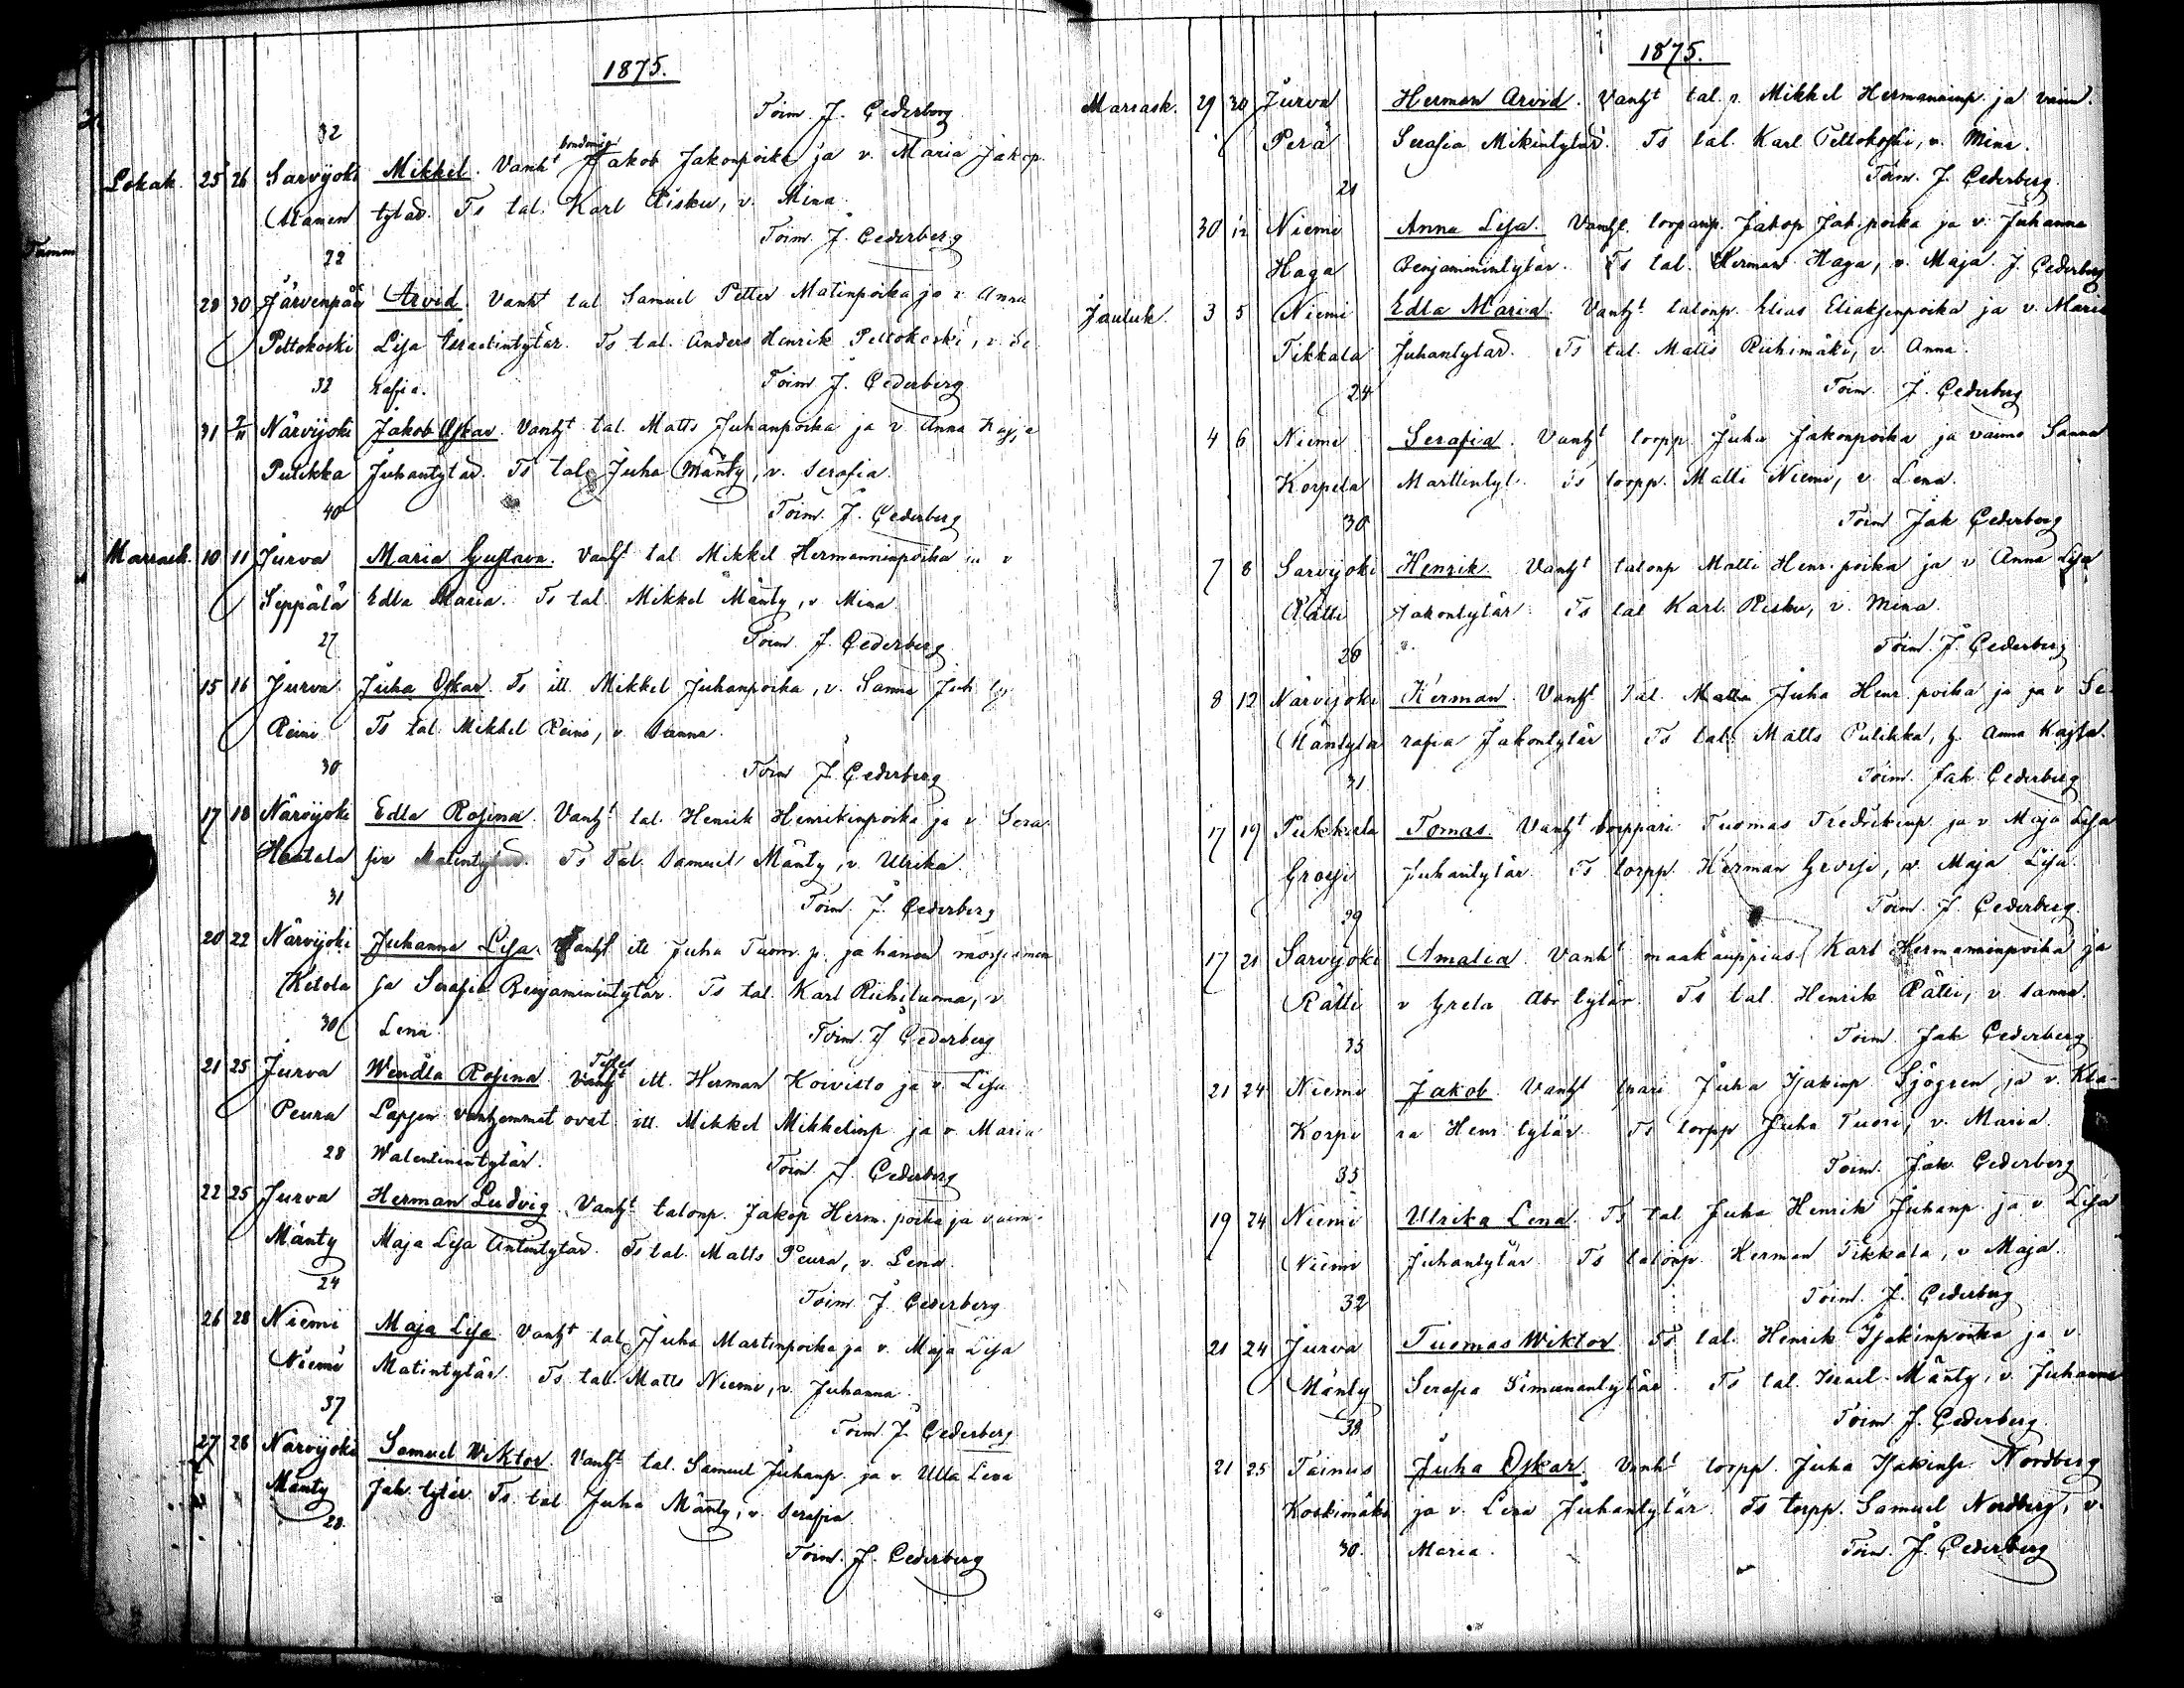 1875.
Toim. J. Cederberg
32
Lokak. 25 26 Sarvijoki Mikkel. Vanht bondenig Jakob Jakonpoika ja v. Maria Jakop.
Alanen tytär. Ts tal. Karl Risku, v. Mina.
Toim. J. Cederberg
22
28 30 Järvenpää Arvid. Vanht tal Samuel Petter Matinpoika ja v. Anna
Peltokoski Lisa Israelintytär. Ts tal. Anders Henrik Peltokoski, v. Se
32 rafia. Toim. J. Cederberg
31 2/11 Närvijoki Jakob Oskar. Vanht tal. Matts Juhanpoika ja v Anna Kajsa
Pulikka Juhantytär. Ts tal. Juha Mänty, v. Serafia.
40 Toim. J. Cederberg
Marrask. 10 11 Jurva Maria Gustava. Vanht tal Mikkel Hermanninpoika ja v
Seppälä Edla Maria. Ts tal. Mikkel Mänty, v Mina.
27 Toim. J. Cederberg
15 16 Jurva Juha Oskar. Ts itt. Mikkel Juhanpoika, v. Sanna Juh. tyt
Reini Ts tal. Mikkel Reini, v. Sanna.
30 Toim J. Cederberg
17 18 Närvijoki Edla Rosina. Vanht tal. Henrik Henrikinpoika ja v. Sera
Hautala fia Matintytär. Ts Tal. Samuel Mänty, v. Ulrika.
31 Toim. J. Cederberg
20 22 Närvijoki Juhanna Lisa. Vanht itt Juha Tuom. p. ja hänen morsiamen
Ketola sa Serafia Benjaminintytär. Ts tal. Karl Riihiluoma, v
30 Lena. Toim. J Cederberg
21 25 Jurva Wendla Rosina. Vanht Testes itt. Herman Koivisto ja v. Lisa
Peura Lapsen vanhemmat ovat itt. Mikkel Mikkelinp. ja v. Maria
28 Walentinintytär. Toim. J. Cederberg
22 25 Jurva Herman Ludvig. Vanht talonp. Jakop Herm. poika ja vaim.
Mänty Maja Lisa Antintytär. Ts tal. Matts Peura, v. Lena.
24 Toim. J. Cederberg
26 28 Niemi Maja Lisa. Vanht tal. Juha Martinpoika ja v. Maja Lisa
Niemi Matintytär. Ts tal. Matts Niemi, v. Juhanna.
37 Toim. J. Cederberg
27 28 Närvijoki Samuel Wiktor. Vanht tal. Samuel Juhanp. ja v. Ulla Lena
Mänty Jak. tytär Ts tal Juha Mänty, v. Serafia.
28. Toim. J. Cederberg
1875.
Marrask. 29 30 Jurva Herman Arvid. Vanht tal. p. Mikkel Hermanninp. ja vaim.
Perä Serafia Mikintytär. Ts tal. Karl Peltokoski, v. Mina.
21 Toim. J. Cederberg.
30 Niemi Anna Lisa. Vanht. torpanp. Jakop Jak.poika ja v. Juhanna
Haga Benjaminintytär. Ts tal. Herman Haga, v. Maja J. Cederberg
Jouluk. 3 5 Niemi Edla Maria. Vanht. talonp. Elias Eliaksenpoika ja v. Maria
Tikkala Juhantytär. Ts tal. Matts Riihimäki, v. Anna.
24 Toim. J. Cederberg
4 6 Niemi Serafia. Vanht torpp. Juha Jakonpoika ja vaimo Sanna
Korpela Marttintyt. Ts torpp. Matti Niemi, v. Lena.
30 Toim Jak Cederberg
7 8 Sarvijoki Henrik. Vanht talonp Matti Henr. poika ja v Anna Lisa
Rätti Jakontytär. Ts tal Karl. Risku, v. Mina.
26 Toim. J. Cederberg
8 12 Närvijoki Herman. Vanht Tal. Juha Henr. poika ja ja v Se-
Mäntylä rafia Jakontytär Ts tal. Matts Pulikka, h. Anna Kajsa.
31 Toim. Jak Cederberg
17 19 Tukkala Tomas. Vanht torppari Tuomas Fredrikinp. ja v Maja Lisa
Grossi Juhantytär Ts torpp. Herman Grossi, v. Maja Lisa.
29 Toim. J Cederberg.
17 21 Sarvijoki Amalia. Vanht maakauppias Karl Hermanninpoika ja
Rätti v Greta Abr. tytär. Ts tal. Henrik Rätti, v Sanna.
35 Toim. Jak Cederberg
21 24 Niemi Jakob. Vanht Juha Isakinp Sjögren ja v. Kla-
Korpi ra Henr. tytär. Ts torpp Juha Tuori, v. Maria.
35 Toim. Jak Cederberg
19 24 Niemi Ulrika Lena. Ts tal Juha Henrik Juhanp. ja v Lisa
Niemi Juhantytär. Ts talonp. Herman Tikkala, v Maja.
32 Toim. J. Cederberg
21 24 Jurva Tuomas Wiktor Ts tal. Henrik Isakinpoika ja v.
Mänty Serafia Simunantytär. Ts tal. Israel Mänty, v. Juhanna
38 Toim J. Cederberg
21 25 Tainus Juha Oskar. Vanht torpp. Juha Isakinp. Nordberg
Koskimäki ja v. Lisa Juhantytär. Ts torpp. Samuel Nordberg, v.
30. Maria. Toim. J. Cederberg